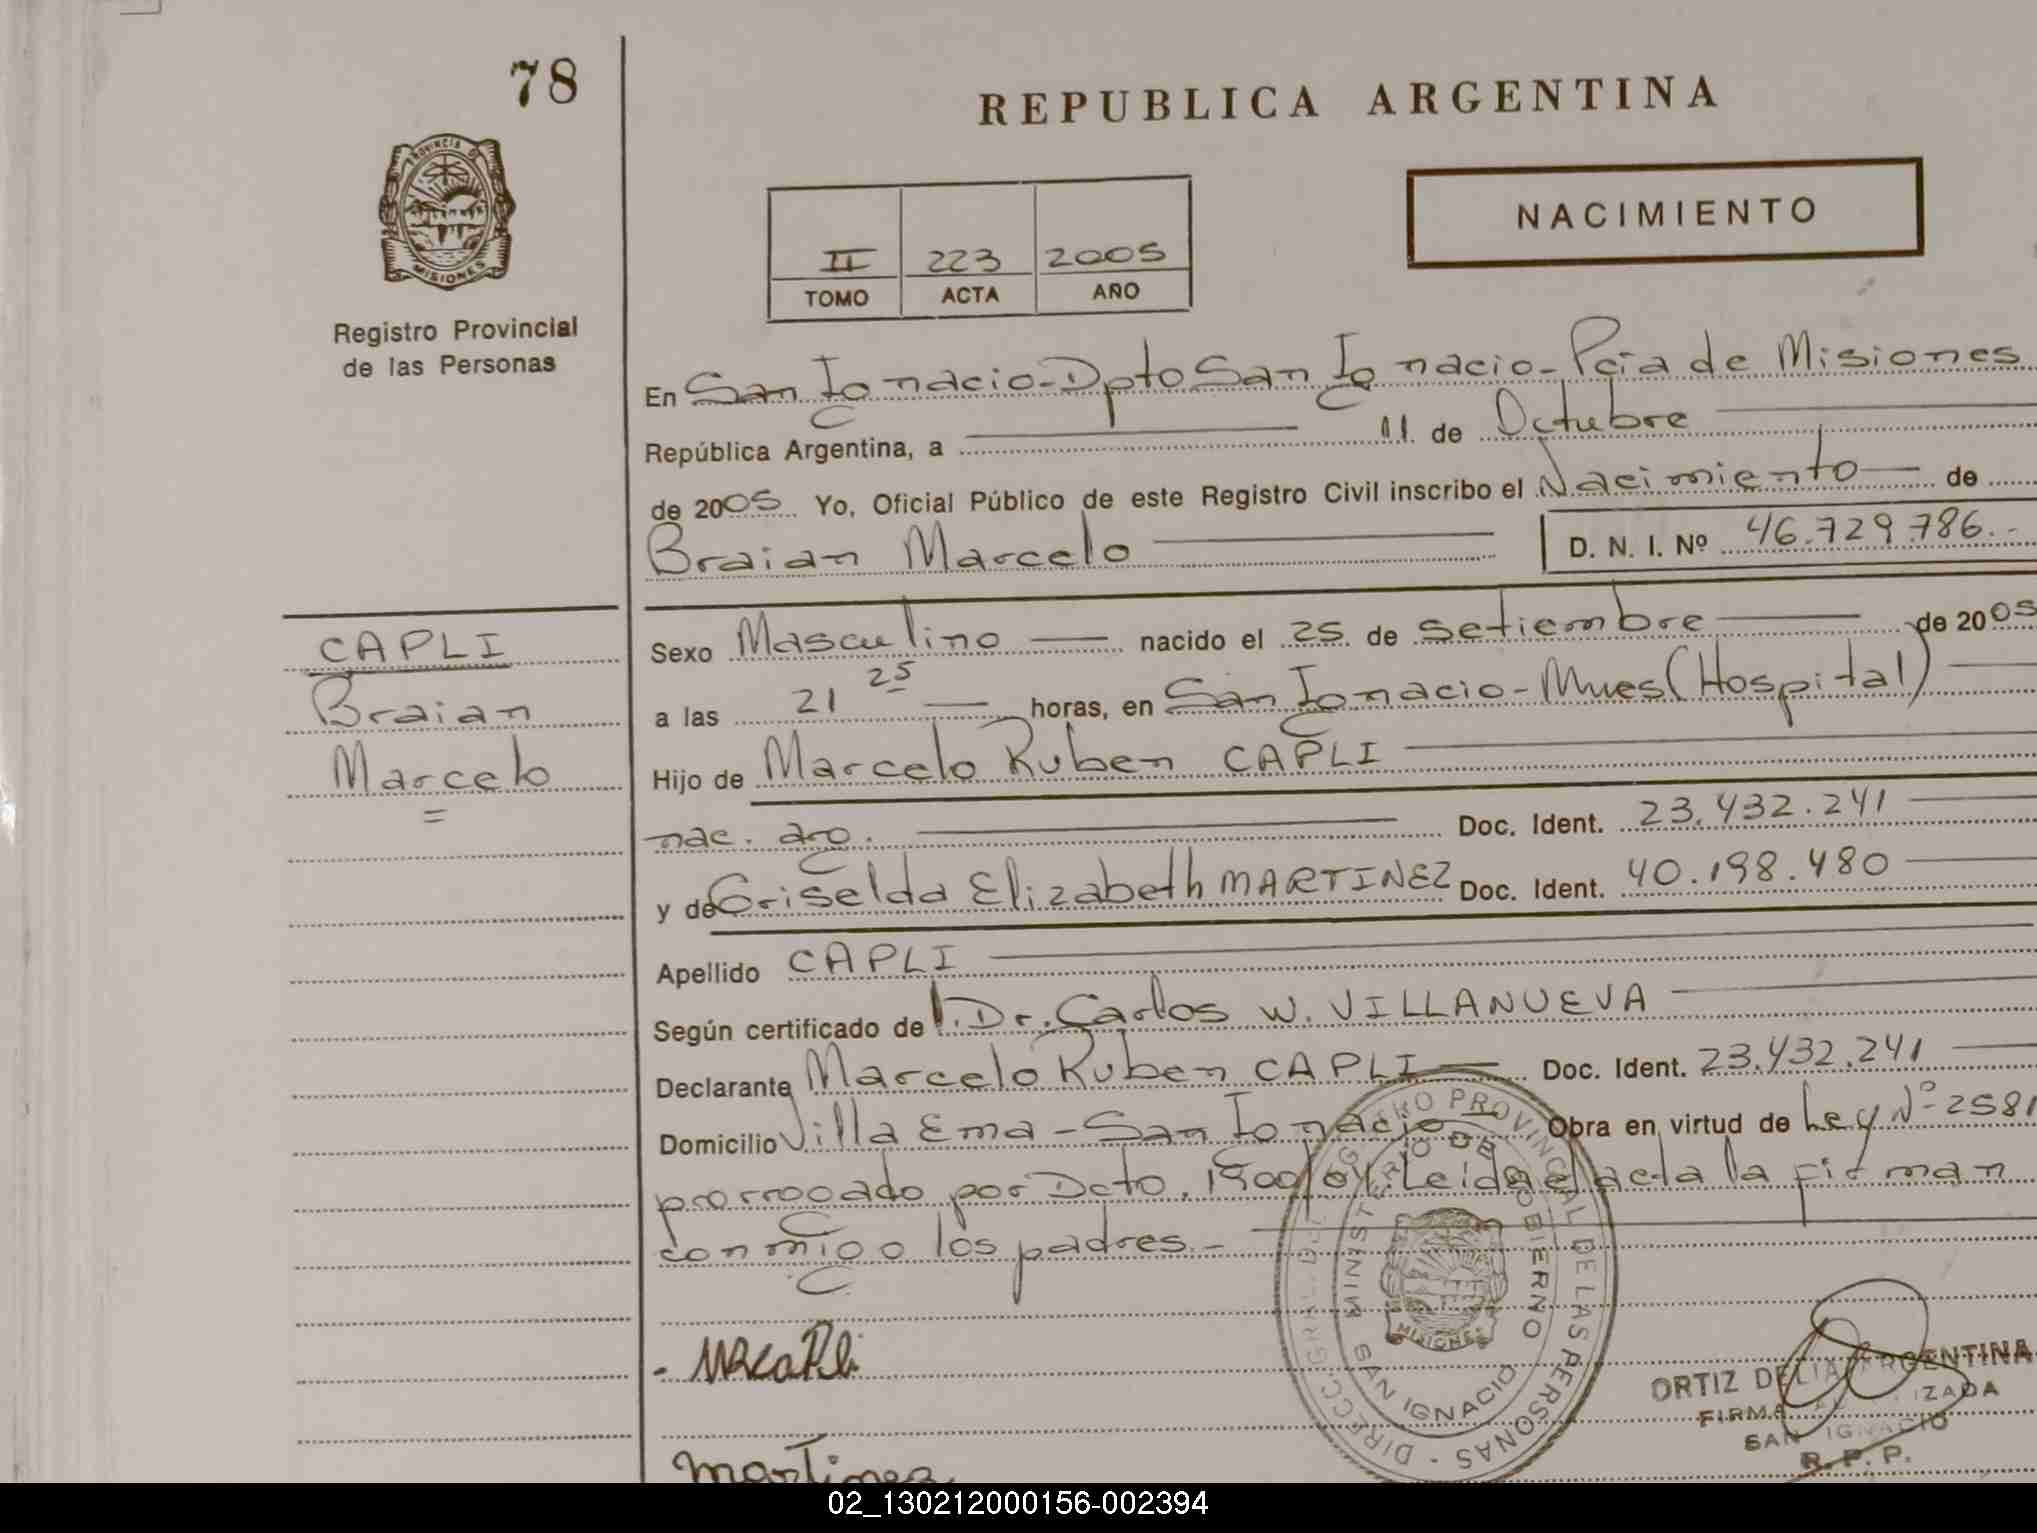 78
REPUBLICA ARGENTINA
PROVINCIA DE
MISIONES
Registro Provincial
de las Personas
NACIMIENTO
II 223 2005
TOMO ACTA AÑO
En San Ignacio - Dpto San Ignacio - Pcia de Misiones
República Argentina, a 11 de Octubre
de 2005 Yo, Oficial Público de este Registro Civil inscribo el Nacimiento de
Braian Marcelo D. N. I. Nº 46.729.786.-
CAPLI
Braian
Marcelo
=
Sexo Masculino nacido el 25 de Setiembre de 2005
a las 21 25 horas, en San Ignacio - Mnes (Hospital)
Hijo de Marcelo Ruben CAPLI
nac. arg. Doc. Ident. 23.432.241
y de Griselda Elizabeth MARTINEZ Doc. Ident. 40.198.480
Apellido CAPLI
Según certificado de Dr. Carlos W. VILLANUEVA
Declarante Marcelo Ruben CAPLI Doc. Ident. 23.432.241
Domicilio Villa Ema - San Ignacio Obra en virtud de Ley Nº 2581
prorrogado por Dcto. 1900/04. Leida el acta la firman
conmigo los padres.-
DIRECC. GRAL. DEL REGISTRO PROVINCIAL DE LAS PERSONAS
MINISTERIO DE GOBIERNO
MISIONES
SAN IGNACIO
ORTIZ DELIA ARGENTINA
FIRMA AUTORIZADA
SAN IGNACIO
R. P. P.
Martinez
02_130212000156-002394